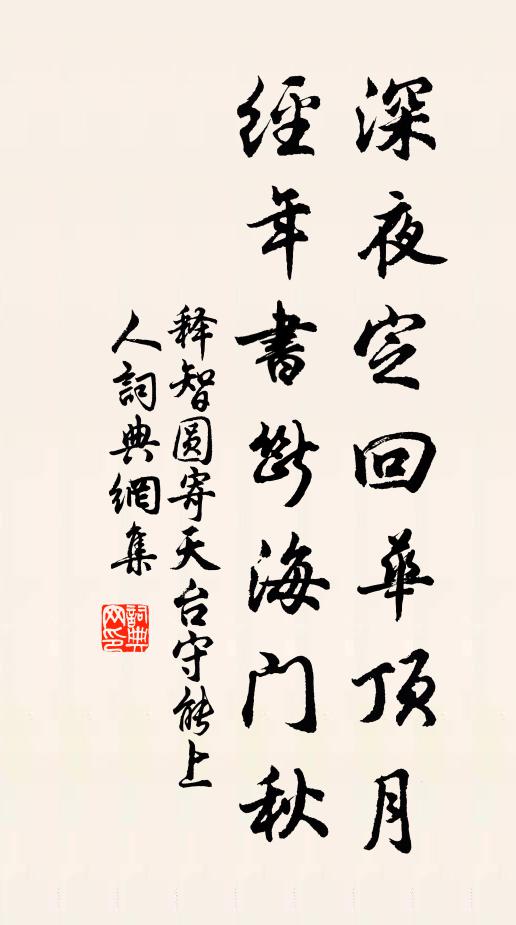 深夜定回華頂月
經年書斷海門秋
释智圓寄天台守能上
人詞典網集
詞典网印